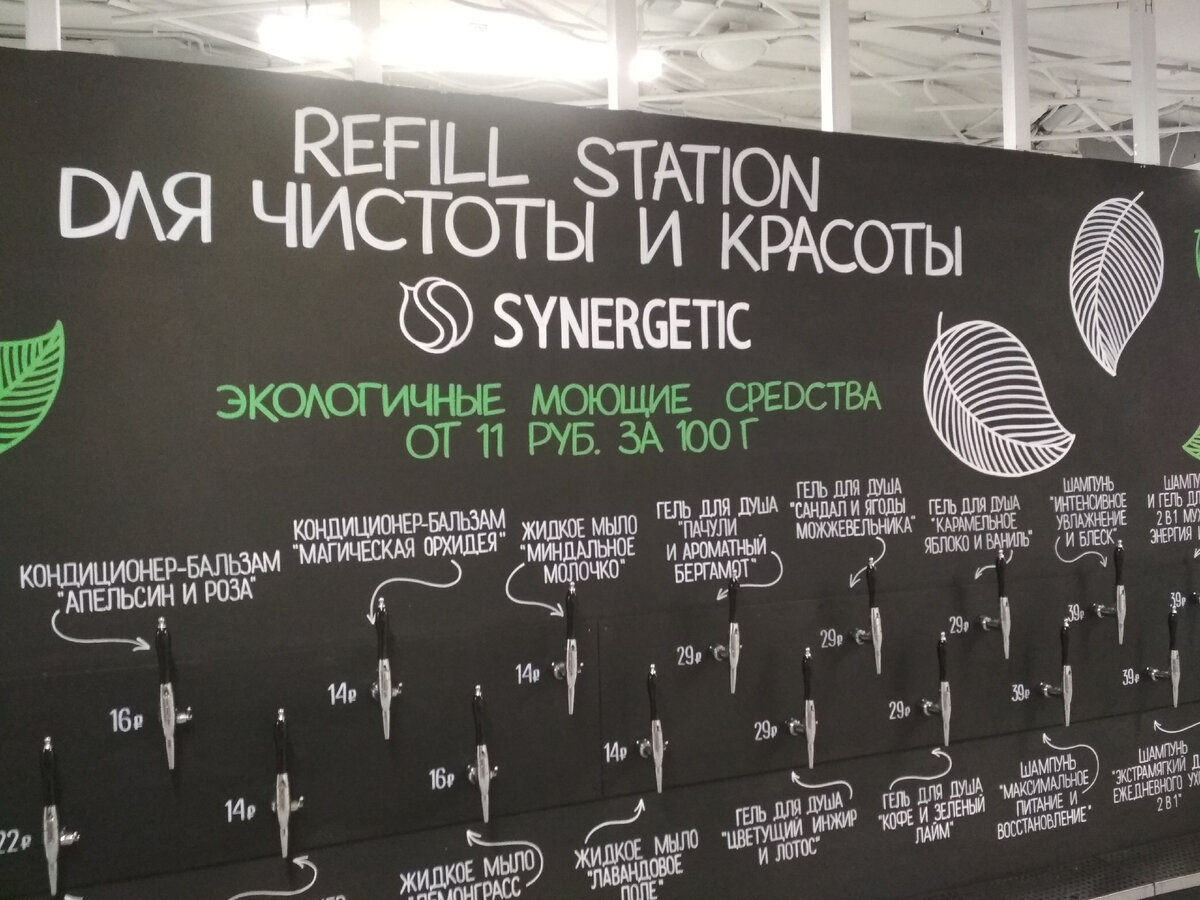 REFILL STATION
ДЛЯ ЧИСТОТЫ И КРАСОТЫ
SYNERGETIC
ЭКОЛОГИЧНЫЕ МОЮЩИЕ СРЕДСТВА
ОТ 11 РУБ. ЗА 100 Г
КОНДИЦИОНЕР-БАЛЬЗАМ
"АПЕЛЬСИН И РОЗА"
КОНДИЦИОНЕР-БАЛЬЗАМ
"МАГИЧЕСКАЯ ОРХИДЕЯ"
ЖИДКОЕ МЫЛО
"МИНДАЛЬНОЕ
МОЛОЧКО"
ГЕЛЬ ДЛЯ ДУША
"ПАЧУЛИ
И АРОМАТНЫЙ
БЕРГАМОТ"
ГЕЛЬ ДЛЯ ДУША
"САНДАЛ И ЯГОДЫ
МОЖЖЕВЕЛЬНИКА"
ГЕЛЬ ДЛЯ ДУША
"КАРАМЕЛЬНОЕ
ЯБЛОКО И ВАНИЛЬ"
ШАМПУНЬ
"ИНТЕНСИВНОЕ
УВЛАЖНЕНИЕ
И БЛЕСК"
И ГЕЛЬ
2 В 1
ЭНЕРГИЯ
16₽
14₽
14₽
29₽
29₽
29₽
39₽
39₽
22₽
14₽
16₽
14₽
29₽
29₽
39₽
39₽
ЖИДКОЕ МЫЛО
ЖИДКОЕ МЫЛО
"ЛАВАНДОВОЕ
ПОЛЕ"
ГЕЛЬ ДЛЯ ДУША
"ЦВЕТУЩИЙ ИНЖИР
И ЛОТОС"
ГЕЛЬ ДЛЯ ДУША
"КОФЕ И ЗЕЛЕНЫЙ
ЛАЙМ"
ШАМПУНЬ
"МАКСИМАЛЬНОЕ
ПИТАНИЕ И
ВОССТАНОВЛЕНИЕ"
ШАМПУНЬ
"ЭКСТРАМЯГКИЙ
ЕЖЕДНЕВНОГО
2 В 1"